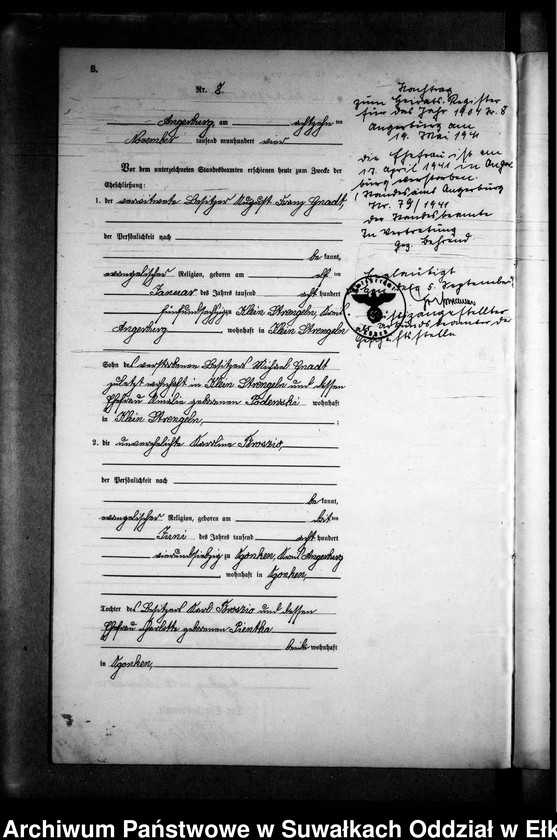 B.
Nr. 8.
Angerburg, am achtzehn ten
November tausend neunhundert vier
Vor dem unterzeichneten Standesbeamten erschienen heute zum Zwecke der
Eheschließung:
1. der verwitwete Besitzer August Franz Gnadt,
der Persönlichkeit nach
be kannt,
evangelischer Religion, geboren am elf ten
Januar des Jahres tausend acht hundert
fünfundsechzig zu Klein Strengeln, Kreis
Angerburg wohnhaft in Klein Strengeln
Sohn des verstorbenen Besitzers Michael Gnadt
zuletzt wohnhaft in Klein Strengeln und dessen
Ehefrau Amalie geborenen Podewski wohnhaft
in Klein Strengeln, ;
2. die unverehelichte Karoline Kroszio,
der Persönlichkeit nach
be kannt,
evangelischer Religion, geboren am ten
Juni des Jahres tausend acht hundert
vierundsiebzig zu Ogonken, Kreis Angerburg
, wohnhaft in Ogonken,
Tochter des Besitzers Karl Kroszio und dessen
Ehefrau Charlotte geborenen Pientka
beide wohnhaft
in Ogonken,
Nachtrag
zum Heirats-Register
für das Jahr 1904 Nr. 8
Angerburg am
19. Mai 1941
Die Ehefrau ist am
17. April 1941 in Anger-
burg verstorben.
(Standesamt Angerburg
Nr. 79/1941
Der Standesbeamte
In Vertretung
Gez. Behrend
Beglaubigt
5. September
Justizangestellter
als Urkundsbeamter der
Geschäftsstelle
Archiwum Państwowe w Suwałkach Oddział w Ełk